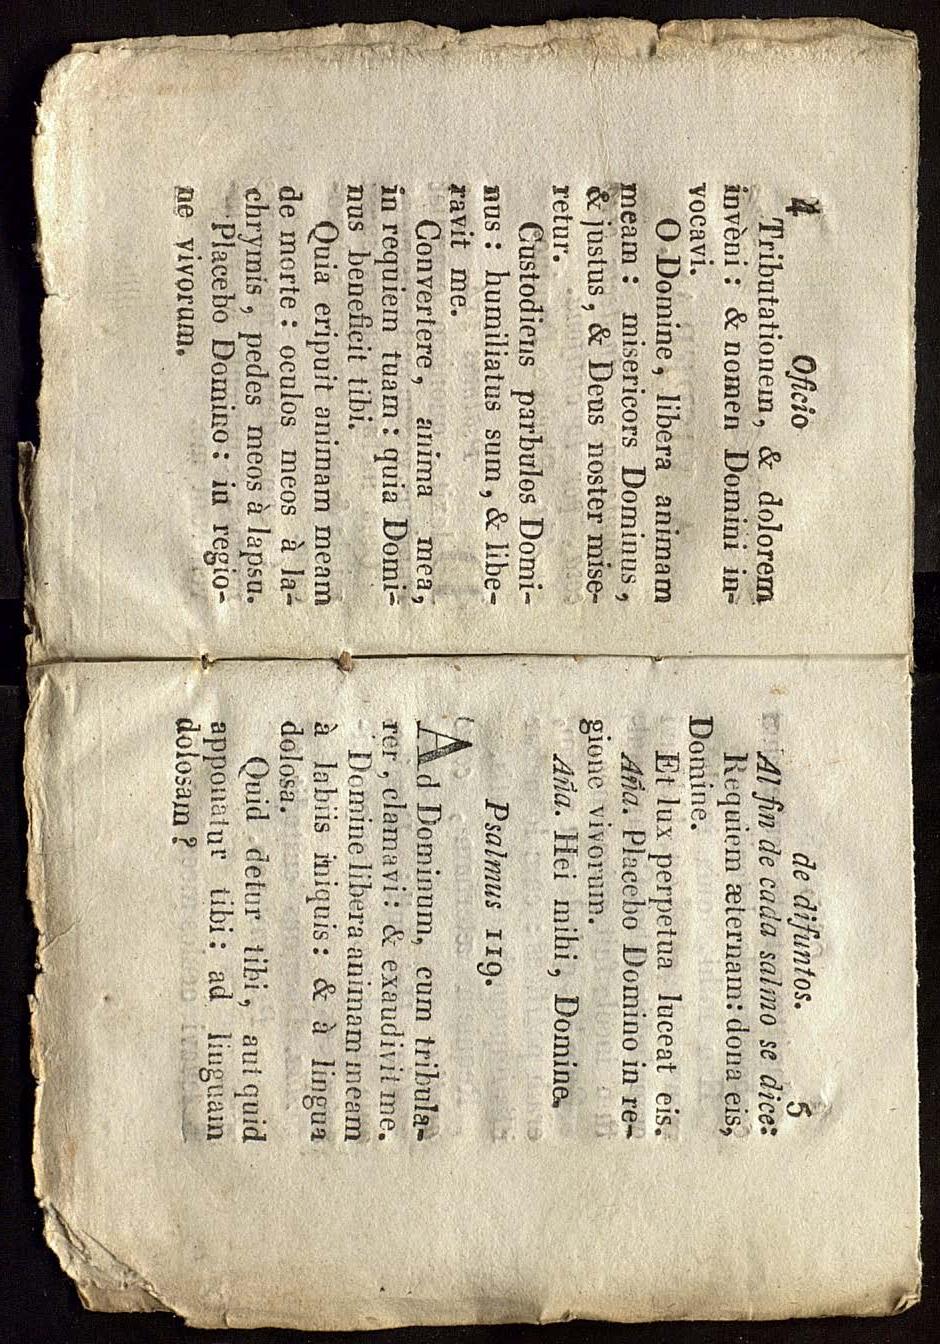 4 Oficio
Tributationem, & dolorem
invèni: & nomen Domini in-
vocavi.
O Domine, libera animam
meam: misericors Dominus,
& justus, & Deus noster mise-
retur.
Custodiens parbulos Domi-
nus: humiliatus sum, & libe-
ravit me.
Convertere, anima mea,
in requiem tuam: quia Domi-
nus beneficit tibi.
Quia eripuit animam meam
de morte: oculos meos à la-
chrymis, pedes meos à lapsu.
Placebo Domino: in regio-
ne vivorum.
de difuntos. 5
Al fin de cada salmo se dice:
Requiem æternam: dona eis,
Domine.
Et lux perpetua luceat eis.
Aña. Placebo Domino in re-
gione vivorum.
Aña. Hei mihi, Domine.
Psalmus 119.
Ad Dominum, cum tribula-
rer, clamavi: & exaudivit me.
Domine libera animam meam
à labiis iniquis: & à lingua
dolosa.
Quid detur tibi, aut quid
apponatur tibi: ad linguam
dolosam?